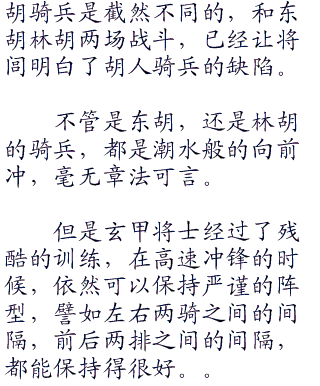 胡骑兵是截然不同的，和东
胡林胡两场战斗，已经让将
闾明白了胡人骑兵的缺陷。
不管是东胡，还是林胡
的骑兵，都是潮水般的向前
冲，毫无章法可言。
但是玄甲将士经过了残
酷的训练，在高速冲锋的时
候，依然可以保持严谨的阵
型，譬如左右两骑之间的间
隔，前后两排之间的间隔，
都能保持得很好。。